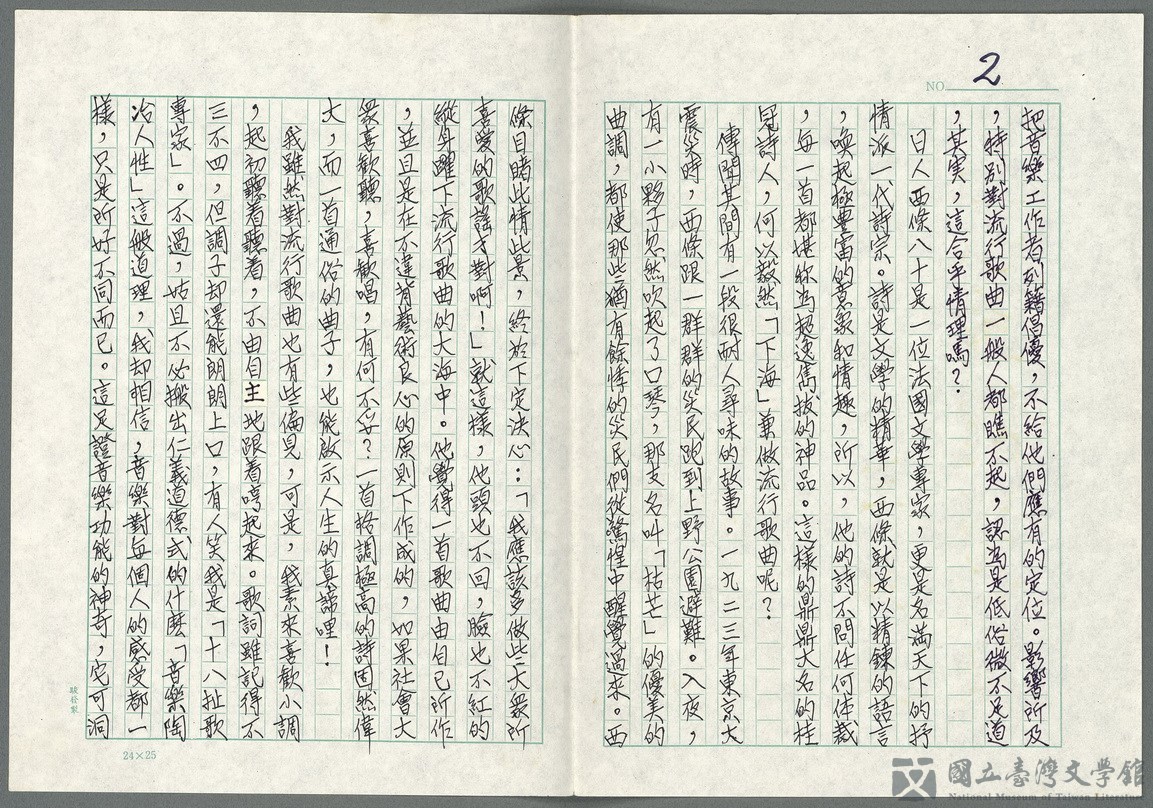 2
NO
把音樂工作者列籍倡優，不給他們應有的定位。影響所及
，特別對流行歌曲一般人都瞧不起，認為是低俗微不足道
，其實，這合乎情理嗎？
日人西條八十是一位法國文學專家，更是名滿天下的抒
情派一代詩宗。詩是文學的精華，西條就是以精鍊的語言
，喚起極豐富的意象和情趣，所以，他的詩不問任何体裁
，每一首都堪称為超逸雋拔的神品。這樣的鼎鼎大名的桂
冠詩人，何以毅然「下海」兼做流行歌曲呢？
傳聞其間有一段很耐人尋味的故事。一九二三年東京大
震災時，西條跟一群群的災民跑到上野公園避難。入夜，
有一小夥子忽然吹起了口琴，那支名叫「枯芒」的優美的
曲調，都使那些猶有餘悸的災民們從驚惶中醒覺過來。西
條目睹此情此景，終於下定決心：「我應該多做些大眾所
喜愛的歌謠才對啊！」就這樣，他頭也不回，臉也不紅的
縱身躍下流行歌曲的大海中。他覺得一首歌曲由自己所作
，並且是在不違背藝術良心的原則下作成的，如果社會大
衆喜歡聽，喜歡唱，有何不妥？一首格調極高的詩固然偉
大，而一首通俗的曲子，也能啟示人生的真諦哩！
我雖然對流行歌曲也有些偏見，可是，我素來喜歡小調
，起初聽着聽着，不由自主地跟着哼起來。歌詞雖記得不
三不四，但調子却還能朗朗上口，有人笑我是「十八扯歌
專家」。不過，姑且不必搬出仁義道德式的什麼「音樂陶
冶人性」這般道理，我却相信，音樂對每個人的感受都一
樣，只是所好不同而已。這足證音樂功能的神奇，它可洞
24×25
國立臺灣文學館
National Museum of Taiwan Literature